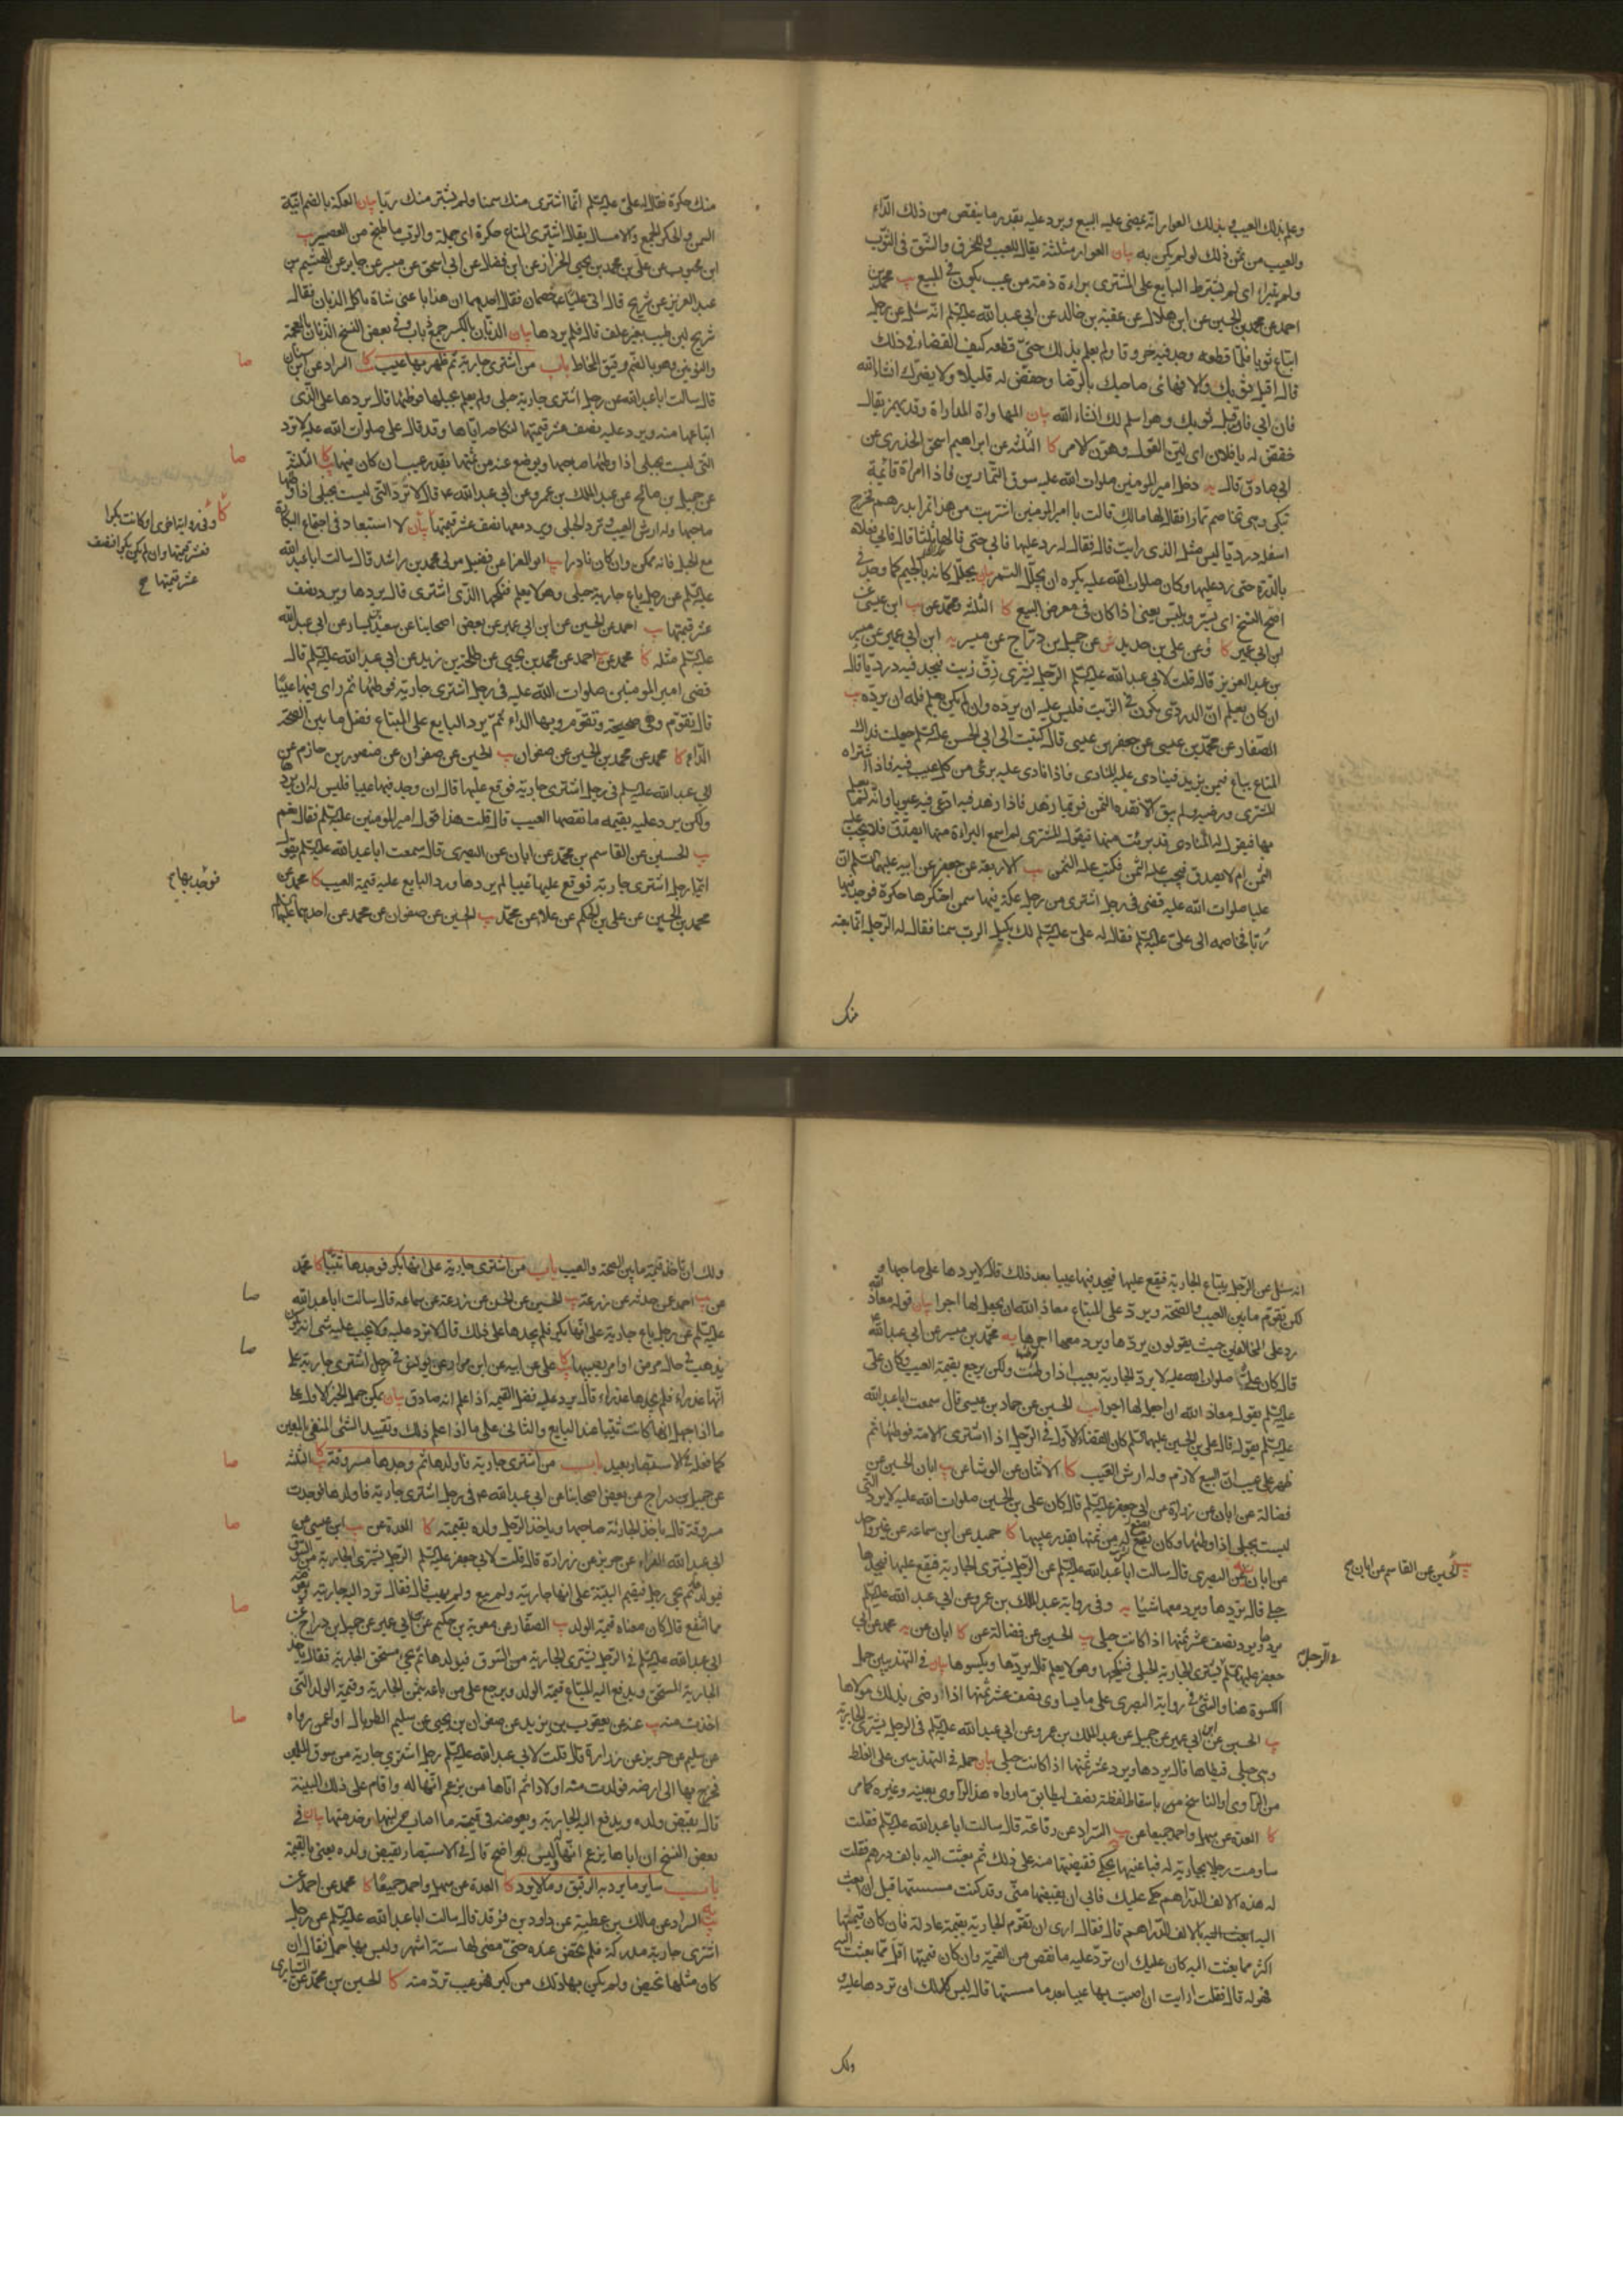 وعلم بذلك العيب في بذلك العوار انه يمضي عليه البيع ويرد عليه بقدر ما ينقص من ذلك الداء
والعيب من ثمن ذلك لو لم يكن به بيان العوار مثلثة يقال للعيب والخرق والشق في الثوب
ولم يتبرا اي لم يشترط البايع على المشتري براءة ذمته من عيب يكون في المبيع يب محمد بن
احمد عن محمد بن الحسين عن ابن هلال عن عقبة بن خالد عن ابي عبد الله عليه السلم انه سئل عن رجل
ابتاع ثوبا فلما قطعه وجد فيه خروقا ولم يعلم بذلك حتى قطعه كيف القضاء في ذلك
قال اقبل ثوبك والا فهايئ صاحبك بالرضا وخفض له قليلا ولا يضرك انشاء الله
فان ابى فاقبل ثوبك وهو اسلم لك انشاء الله بيان المهاواة المداواة وقد يهمز يقال
خفض له يا فلان اي لين القول وهون الامر كا الثلثة عن ابراهيم اسحق الخدري عن
ابي صادق قال يه دخل امير المؤمنين صلوات الله عليه سوق التمارين فاذا امراة قائمة
تبكي وهي تخاصم تمارا فقال لها مالك قالت يا امير المؤمنين اشتريت من هذا تمرا بدرهم فخرج
اسفله رديا ليس مثل الذي رايت قال فقال له رد عليها فابى حتى قالها ثلثا فابى فعلاه
بالدرة حتى رد عليها وكان صلوات الله عليه يكره ان يجلل التمر بيان يجلل كانه بالجيم كما وجد في
اصح النسخ اي يستر ويلبس يعني اذا كان في معرض البيع كا الثلثة ومحمد عن يب ابن عيسى عن
ابن ابي عمير كا وعن علي بن حديد ش عن جميل بن دراج عن ميسر يه ابن ابي عمير عن ميسر
بن عبد العزيز قال قلت لابي عبد الله عليه السلم الرجل يشتري زق زيت فيجد فيه درديا قال
ان كان يعلم ان الدردي يكون في الزيت فليس عليه ان يرده وان لم يكن يعلم فله ان يرده يب
الصفار عن محمد بن عيسى عن جعفر بن عيسى قال كتبت الى ابي الحسن عليه السلم جعلت فداك
المتاع يباع فيمن يزيد فينادي عليه المنادي فاذا نادى عليه برئ من كل عيب فيه فاذا اشتراه
المشتري ورضيه ولم يبق الا نقده الثمن فربما زهد فاذا زهد فيه ادعى فيه عيوبا وانه لم يعلم
بها فيقول له المنادي قد برئت منها فيقول المشتري لم اسمع البراءة منها ايصدق فلا يجب عليه
الثمن ام لا يصدق فيجب عليه الثمن فكتب عليه الثمن يب الاربعة عن جعفر عن ابيه عليهما السلم ان
عليا صلوات الله عليه قضى في رجل اشترى من رجل عكة فيها سمن احتكرها حكرة فوجد فيها
ربا فخاصمه الى علي عليه السلم فقال له علي عليه السلم لك بكيل الرب سمنا فقال له الرجل انما بعته
منك
منك حكرة فقال له علي عليه السلم انما اشترى منك سمنا ولم يشتر منك ربا بيان العكة بالضم انية
السمن والحكر الجمع والامساك يقال اشترى المتاع حكرة اي جملة والرب ما طبخ من العصير يب
ابن محبوب عن علي بن محمد بن يحيى الخزاز عن ابن فضال عن ابي اسحق عن ميسر عن جابر عن الهيثم بن
عبد العزيز عن شريح قال اتى عليا خصمان فقال احدهما ان هذا باعني شاة تاكل الذبان فقال
شريح لبن طيب بغير علف قال فلم يردها بيان الذبان بالكسر جمع ذباب وفي بعض النسخ الذنان بالمعجمة
والنونين وهو بالضم رقيق المخاط باب من اشترى جارية ثم ظهر بها عيب كا السراد عن ابن سنان
قال سالت ابا عبد الله عن رجل اشترى جارية حبلى ولم يعلم بحبلها فوطئها قال يردها على الذي
ابتاعها منه ويرد عليه نصف عشر قيمتها لنكاحه اياها وقد قال علي صلوات الله عليه لا ترد
التي ليست بحبلى اذا وطئها صاحبها ويوضع عنه من ثمنها بقدر عيب ان كان فيها كا الثلثة
عن جميل بن صالح عن عبد الملك بن عمرو عن ابي عبد الله ع قال لا ترد التي ليست بحبلى اذا وطئها
صاحبها وله ارش العيب وترد الحبلى ويرد معها نصف عشر قيمتها بيان لا استبعاد في اجتماع البكارة
مع الحبل فانه ممكن وان كان نادرا يب ابو المعزا عن فضيل مولى محمد بن راشد قال سالت ابا عبد الله
عليه السلم عن رجل باع جارية حبلى وهو لا يعلم فنكحها الذي اشترى قال يردها ويرد نصف
عشر قيمتها يب احمد عن الحسين عن ابن ابي عمير عن بعض اصحابنا عن سعيد بن يسار عن ابي عبد الله
عليه السلم مثله كا محمد عن يب احمد عن محمد بن يحيى عن طلحة بن زيد عن ابي عبد الله عليه السلم قال
قضى امير المومنين صلوات الله عليه في رجل اشترى جارية فوطئها ثم راى فيها عيبا
قال تقوم وهي صحيحة وتقوم وبها الداء ثم يرد البايع على المبتاع فضل ما بين الصحة
الداء كا محمد عن محمد بن الحسين عن صفوان يب الحسين عن صفوان عن منصور بن حازم عن
ابي عبد الله عليه السلم في رجل اشترى جارية فوقع عليها قال ان وجد فيها عيبا فليس له ان يردها
ولكن يرد عليه بقيمة ما نقصها العيب قال قلت هذا قول امير المومنين عليه السلم فقال نعم
يب الحسين عن القاسم بن محمد عن ابان عن البصري قال سمعت ابا عبد الله عليه السلم يقول
ايما رجل اشترى جارية فوقع عليها عيبا لم يردها ورد البايع عليه قيمة العيب كا محمد عن
محمد بن الحسين عن علي بن الحكم عن علاء عن محمد يب الحسين عن صفوان عن محمد عن احدهما عليهما السلم
صا
صا
كا وفي رواية اخرى ان كانت بكرا
فعشر قيمتها وان لم يكن بكرا فنصف
عشر قيمتها صح
فوجد بها صح
انه سئل عن الرجل يبتاع الجارية فيقع عليها فيجد فيها عيبا بعد ذلك قال لا يردها على صاحبها و
لكن تقوم ما بين العيب والصحة ويرد على المبتاع معاذ الله ان يجعل لها اجرا بيان قوله معاذ الله
رد على المخالفين حيث يقولون يردها ويرد معها اجرها يه محمد بن ميسر عن ابي عبد الله ع
قال كان علي صلوات الله عليه لا يرد الجارية بعيب اذا وطئت ولكن يرجع بقيمة العيب وكان علي
عليه السلم يقول معاذ الله ان اجعل لها اجرا يب الحسين عن حماد بن عيسى قال سمعت ابا عبد الله
عليه السلم يقول قال علي بن الحسين عليهما السلم كان القضاء الاول في الرجل اذا اشترى الامة فوطئها ثم
ظهر على عيب ان البيع لازم وله ارش العيب كا الاثنان عن الوشا عن يب ابان الحسين عن
فضالة عن ابان عن زرارة عن ابي جعفر عليه السلم قال كان علي بن الحسين صلوات الله عليه لا يرد التي
ليست بحبلى اذا وطئها وكان يضع له من ثمنها بقدر عيبها كا حميد عن ابن سماعه عن غير واحد
عن ابان عن البصري قال سالت ابا عبد الله عليه السلم عن الرجل يشتري الجارية فيقع عليها فيجدها
حبلى قال يردها ويرد معها شيئا يه وفي رواية عبد الملك بن عمرو عن ابي عبد الله عليه السلم
يردها ويرد نصف عشر ثمنها اذا كانت حبلى يب الحسين عن فضالة عن كا ابان عن يه محمد عن ابي
جعفر عليه السلم يشتري الجارية الحبلى فينكحها وهو لا يعلم قال يردها ويكسوها بيان في التهذيبين حمل
الكسوة هنا والشئ في رواية البصري على ما يساوي نصف عشر ثمنها اذا رضي بذلك مولاها
يب الحسين عن ابن ابي عمير عن جميل عن عبد الملك بن عمرو عن ابي عبد الله عليه السلم في الرجل يشتري الجارية
وهي حبلى فيطاها قال يردها ويرد عشر ثمنها اذا كانت حبلى بيان حمله في التهذيبين على الغلط
من الراوي او الناسخ باسقاط لفظة نصف ليطابق ما رواه هذا الراوي بعينه وغيره كما مر
كا العدة عن سهل واحمد جميعا عن يب السراد عن رفاعة قال سالت ابا عبد الله عليه السلم فقلت
ساومت رجلا بجارية له فباعنيها بحكمي فقبضتها منه على ذلك ثم بعثت اليه بالف درهم فقلت
له هذه الالف الدراهم حكمي عليك فابى ان يقبضها مني وقد كنت مسستها قبل ان ابعث
اليه بالالف الدراهم قال فقال ارى ان تقوم الجارية بقيمة عادلة فان كان قيمتها
اكثر مما بعثت اليه كان عليك ان ترد عليه ما نقص من القيمة وان كان قيمتها اقل مما بعثت اليه
فهو له قال فقلت ارايت ان اصبت بها عيبا بعد ما مسستها قال ليس لك ان تردها عليه
ولك
يب الحسين عن القاسم عن ابان صح
في الرجل
ولك ان تاخذ قيمة ما بين الصحة والعيب باب من اشترى جارية على انها بكر فوجدها ثيبا كا محمد
عن يب احمد عمن حدثه عن زرعة يب الحسين عن الحسن عن زرعة عن سماعه قال سالت ابا عبد الله
عليه السلم عن رجل باع جارية على انها بكر فلم يجدها على ذلك قال لا ترد عليه ولا يجب عليه شئ انه يكون
يذهب في حال مرض او امر يصيبها كا علي عن ابيه عن ابن مرار عن يونس في رجل اشترى جارية على
انها عذراء فلم يجدها عذراء قال يرد عليه فضل القيمة اذا علم انه صادق بيان يمكن حمل الخبر الاول على
ما اذا جهل انها كانت ثيبا عند البايع والثاني على ما اذا علم ذلك وتقييد الشئ المنفي بالمعين
كما فعله في الاستبصار بعيد باب من اشترى جارية فاولدها ثم وجدها مسروقة كا يب الثلثة
عن جميل بن دراج عن بعض اصحابنا عن ابي عبد الله ع في رجل اشترى جارية فاولدها فوجدت
مسروقة قال ياخذ الجارية صاحبها وياخذ الرجل ولده بقيمته كا العدة عن يب ابن عيسى عن
ابي عبد الله الفراء عن حريز عن زرارة قال قلت لابي جعفر عليه السلم الرجل يشتري الجارية من السوق
فيولدها ثم يجئ رجل فيقيم البينة على انها جاريته ولم يبع ولم يهب قال فقال ترد اليه جاريته ويعوضه
مما انتفع قال كان معناه قيمة الولد يب الصفار عن معوية بن حكيم عن ابن ابي عمير عن جميل بن دراج عن
ابي عبد الله عليه السلم في الرجل يشتري الجارية من السوق فيولدها ثم يجئ مستحق الجارية فقال ياخذ
الجارية المستحق ويدفع اليه المبتاع قيمة الولد ويرجع على من باعه بثمن الجارية وقيمة الولد التي
اخذت منه يب عنه عن يعقوب بن يزيد عن صفوان بن يحيى عن سليم الطربال او عمن رواه
عن سليم عن حريز عن زرارة قال قلت لابي عبد الله عليه السلم رجل اشترى جارية من سوق المسلمين
فخرج بها الى ارضه فولدت منه اولادا ثم اتاها من يزعم انها له واقام على ذلك البينة
قال يقبض ولده ويدفع اليه الجارية ويعوضه في قيمة ما اصاب من لبنها وخدمتها بيان في
بعض النسخ ان اباها يزعم انها وليس بواضح قال في الاستبصار يقبض ولده يعني بالقيمة
باب ساير ما يرد به الرقيق وما لا يرد كا العدة عن سهل واحمد جميعا كا محمد عن احمد عن
يه يب السراد عن مالك بن عطية عن داود بن فرقد قال سالت ابا عبد الله عليه السلم عن رجل
اشترى جارية مدركة فلم تحض عنده حتى مضى لها ستة اشهر وليس بها حمل فقال ان
كان مثلها تحيض ولم يكن ذلك من كبر فهو عيب ترد منه كا الحسين بن محمد عن السياري
صا
صا
صا
صا
صا
صا